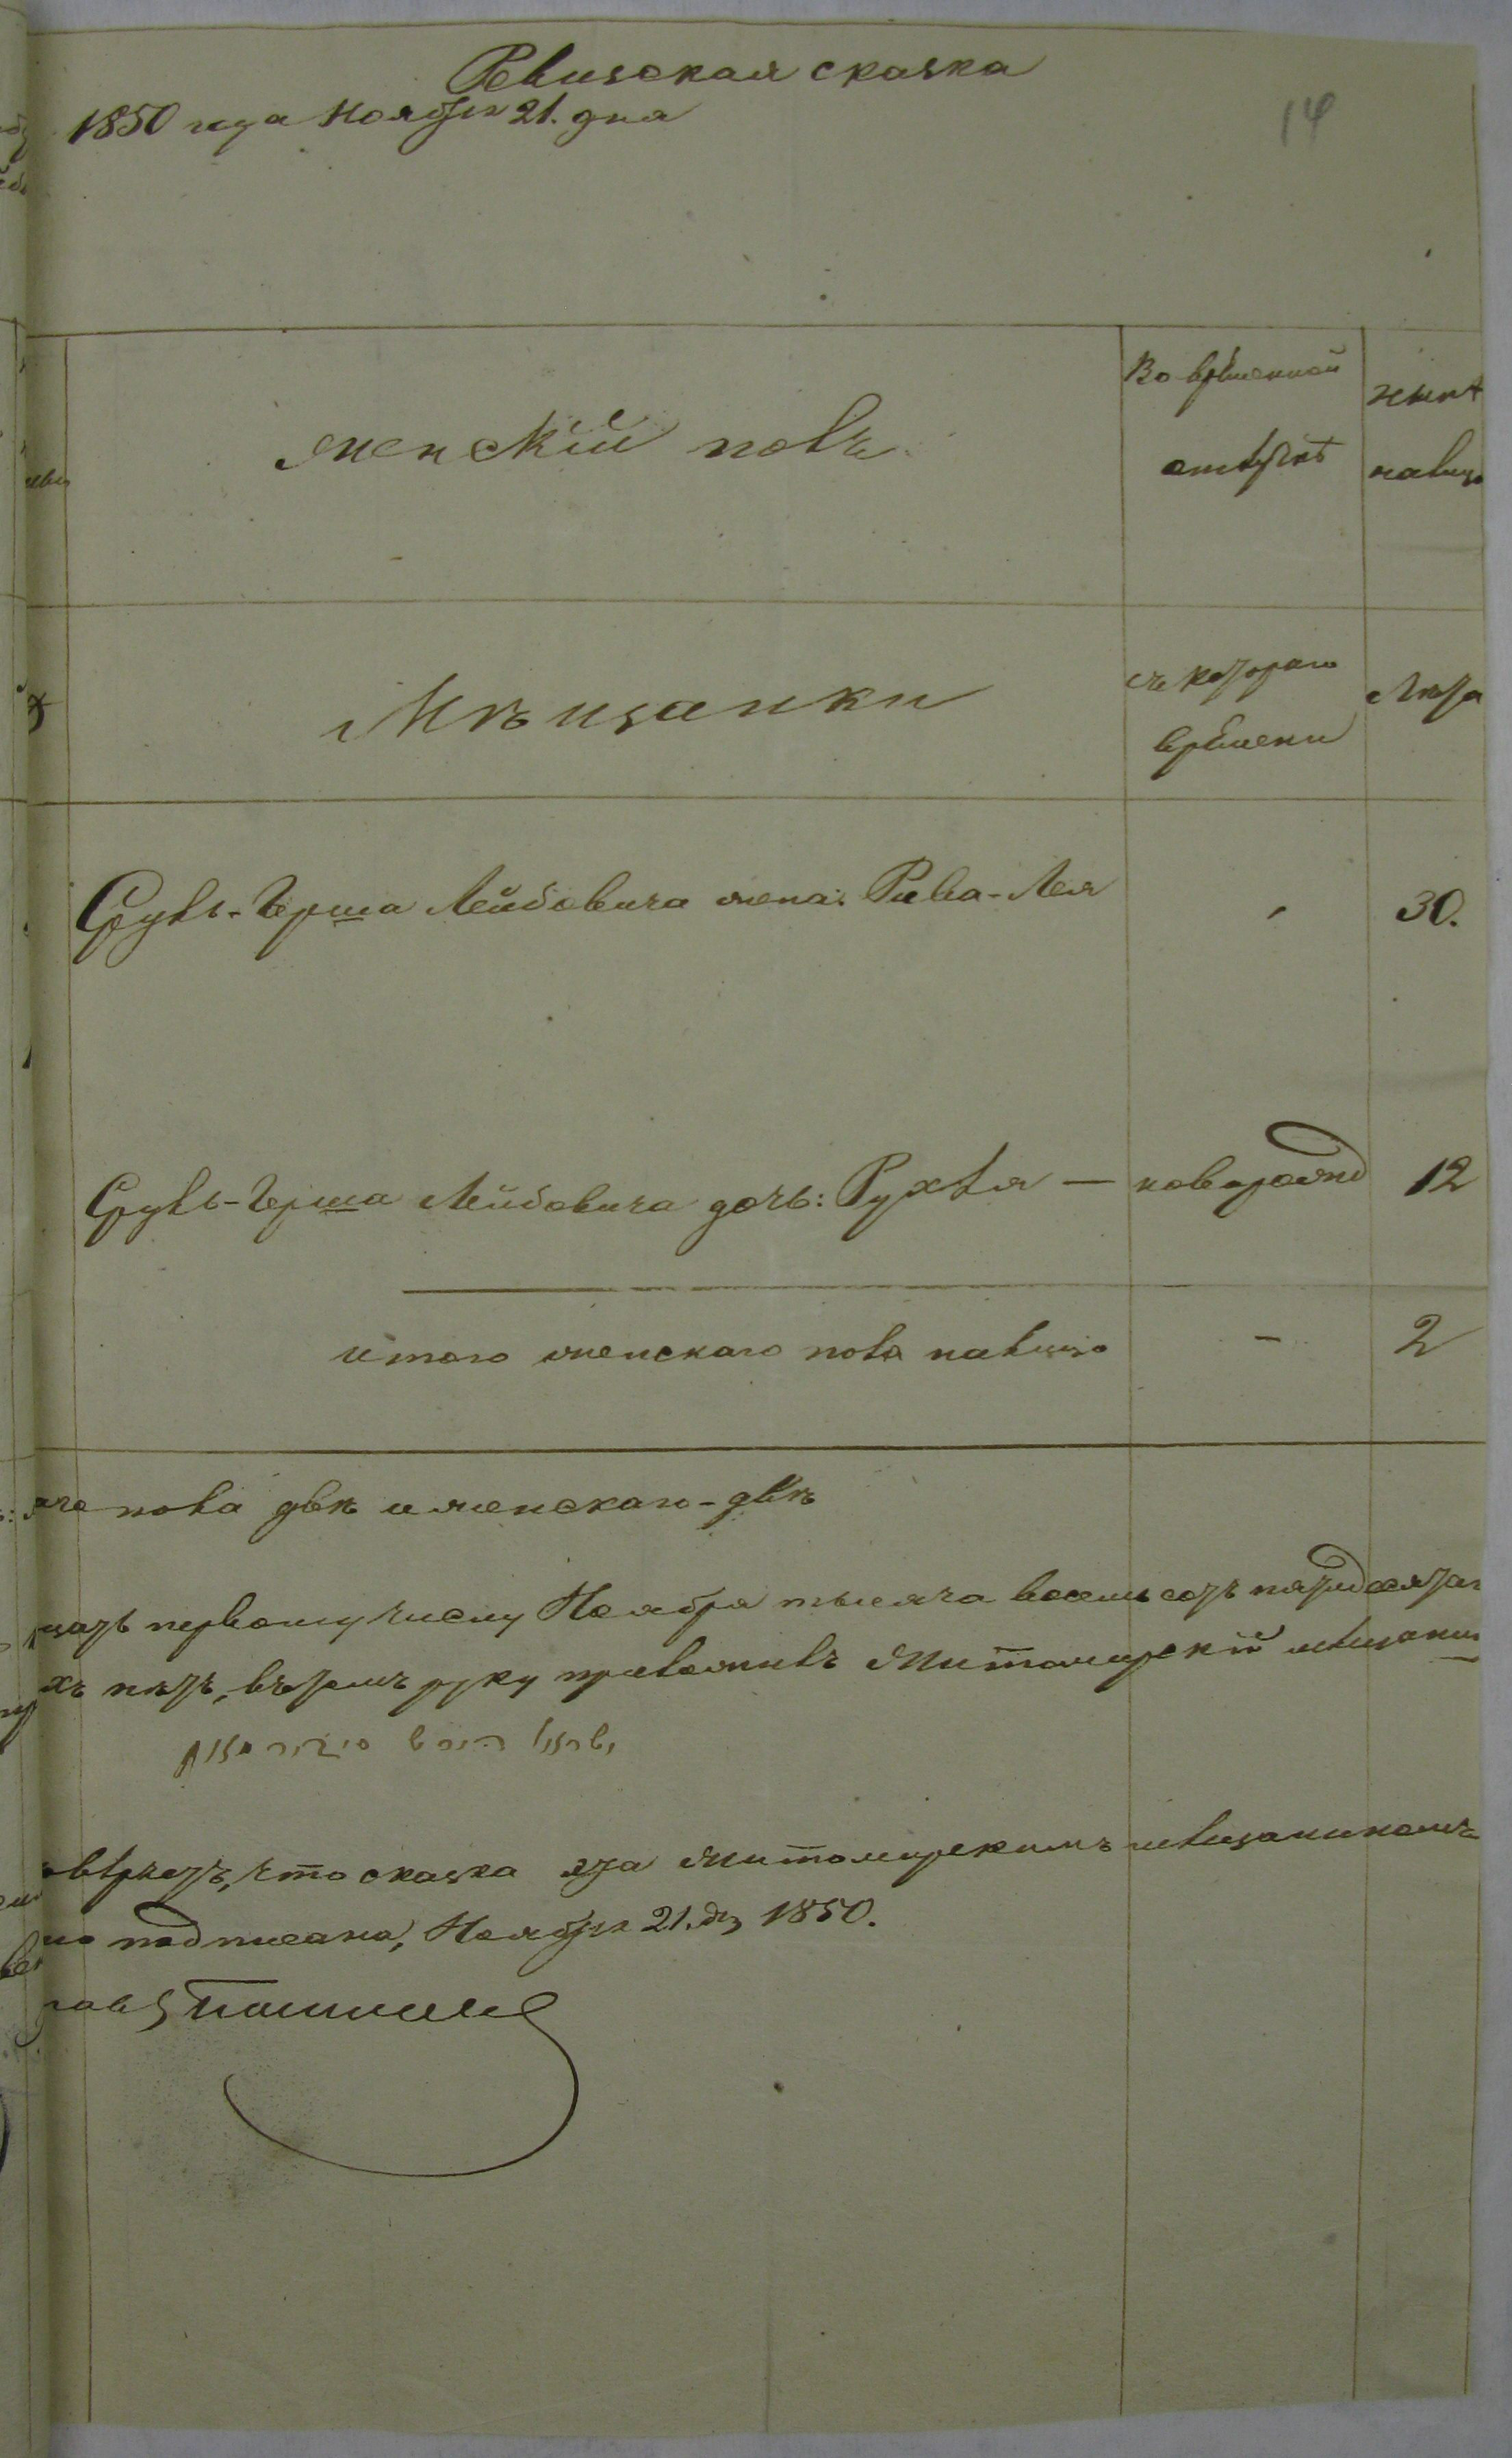 Ревизская сказка
1850 года Ноября 21. дня
14
женскій полъ.
Во временной
отлучкѣ
нынѣ
налицо
Мѣщанки
съ котораго
времени
Лѣта
Сруль-Герша Лейбовича жена: Рива-Лея
30.
Сруль-Герша Лейбовича дочь: Рухля — новорожд 12
итого женскаго пола налицо - 2
пола двѣ и женскаго - двѣ
цать первому числу Ноября тысяча восемь сотъ пятидесята
хъ нѣтъ, въ томъ руку приложилъ Житомирскій мѣщанин
что сказка эта Житомирскимъ мѣщаниномъ
но подписана, Ноября 21. дня 1850.